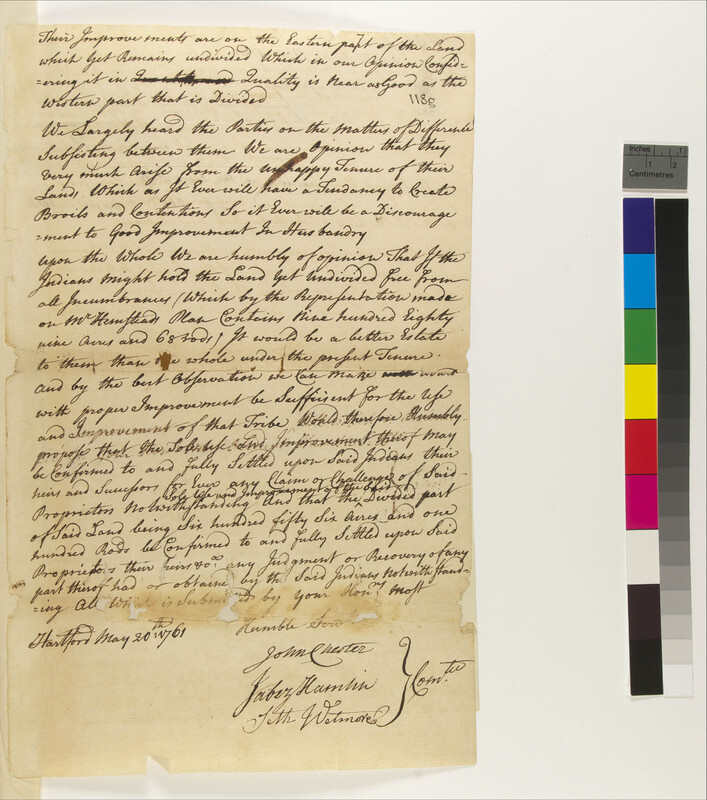 Their Improvements are on the Eastern part of the Land
which yet Remains undivided Which in our Opinion Consid-
=ering it in Quality is Near as Good as the
Western part that is Divided
118g
We Largely heard the Parties on the Matters of Difference
Subsisting between them We are Opinion that they
very much arise from the unhappy Tenure of their
Land, Which as It Ever will have a Tendancy to Create
Broils and Contentions So it Ever will be a Discourage
=ment to Good Improvement In Husbandry
upon the Whole We are humbly of opinion That If the
Indians might hold the Land yet undivided free from
all Incumbrances (Which by the Representation made
on Mr Hemsteads Plan Contains Nine hundred Eighty
nine Acres and 68 rods) It would be a better Estate
to them than the whole under the present Tenure.
and by the best Observation we Can make woud
with proper Improvement be Suffisent for the Use
and Improvement of that Tribe Would therefore Humbly
propose that the Sole use and Improvement therof may
be Confirmed to and fully Settled upon Said Indians their
heirs and Successors for Ever any Claim or Challenge of Said
Proprietors Notwithstanding And that the Divided part
Sole Use and Improvement of the Said
of Said Land being Six hundred fifty Six Acres and one
hundred Rods be Confirmed to and fully Settled upon Said
Proprietors their heirs &c. any Judgment or Recovery of any
part therof had or obtained by the Said Indians Notwithstand-
=ing All Which is Submitted by your Honrs most
Hartford May 20th 1761
Humble Servts
John Chester
Jabez Hamlin
Seth Wetmore
Comtee
Inches
1
2
Centimetres